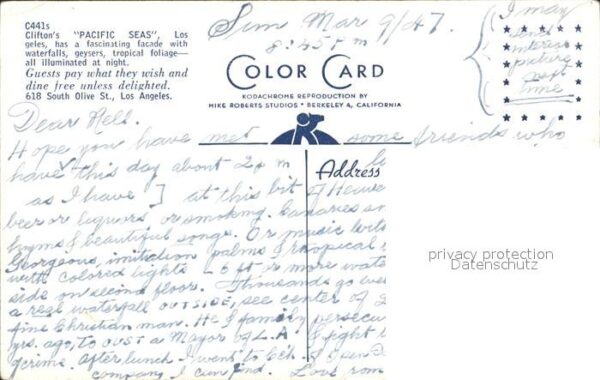 C441s
Clifton's "PACIFIC SEAS", Los
geles, has a fascinating facade with
waterfalls, geysers, tropical foliage—
all illuminated at night.
Guests pay what they wish and
dine free unless delighted.
618 South Olive St., Los Angeles.
Sun Mar 9/47.
8:45 P m
I may
send
interior
picture
next
time
COLOR CARD
KODACHROME REPRODUCTION BY
MIKE ROBERTS STUDIOS • BERKELEY 4, CALIFORNIA
Dear Nell.
Hope you have met some friends who
have this day about 2 p m
Address
as I have] at this bit of Heave
beer or liquors or smoking. Canaries
hyms & beautiful songs. Or music
Gorgeous, imitation palms & tropical
with colored lights 6 ft or more wate
side on second floor. Thousands go
a real waterfall OUTSIDE, see center of
fine Christian man. He & family persecu
yrs. ago, to oust a Mayor of L.A. & fight
crime. After lunch I went to Ech.
company I can find. Love
privacy protection
Datenschutz